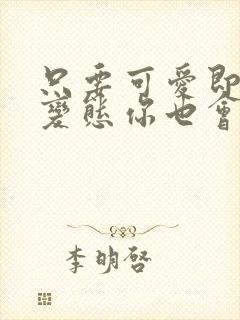 只要可愛即
變態你也會
李明啓